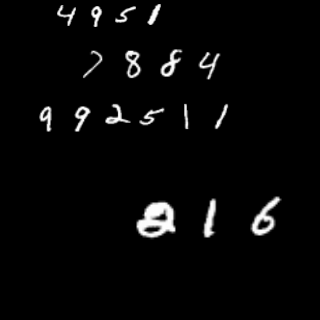 4951
7884
992511
216